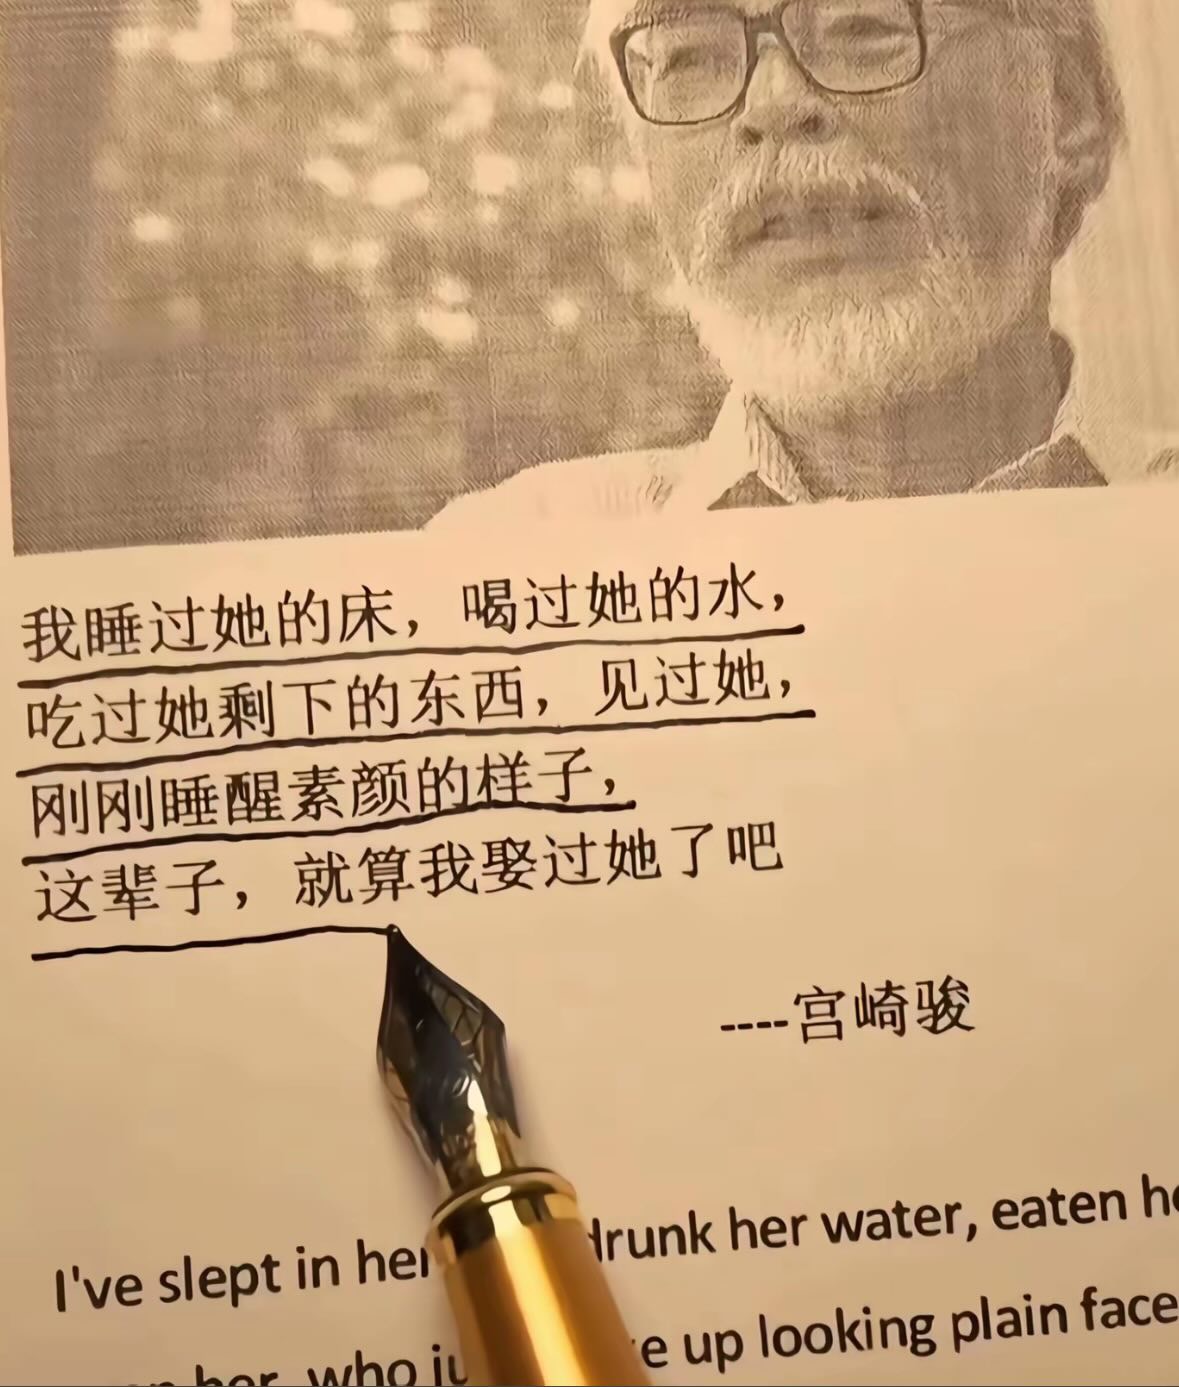 我睡过她的床，喝过她的水，
吃过她剩下的东西，见过她，
刚刚睡醒素颜的样子，
这辈子，就算我娶过她了吧
----宫崎骏
I've slept in her drunk her water, eaten
her, who up looking plain face